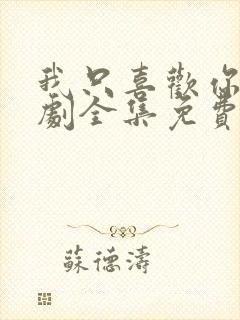 我只喜歡你
劇全集免費
蘇德濤